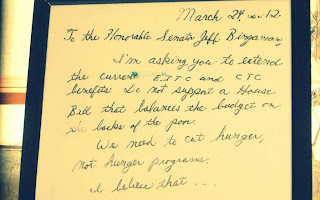 March 24, 2012
To the Honorable Senator Jeff Bingaman,
I'm asking you to extend
the current EITC and CTC
benefits. Do not support a House
Bill that balances the budget on
the backs of the poor.
We need to cut hunger,
not hunger programs.
I believe that ...